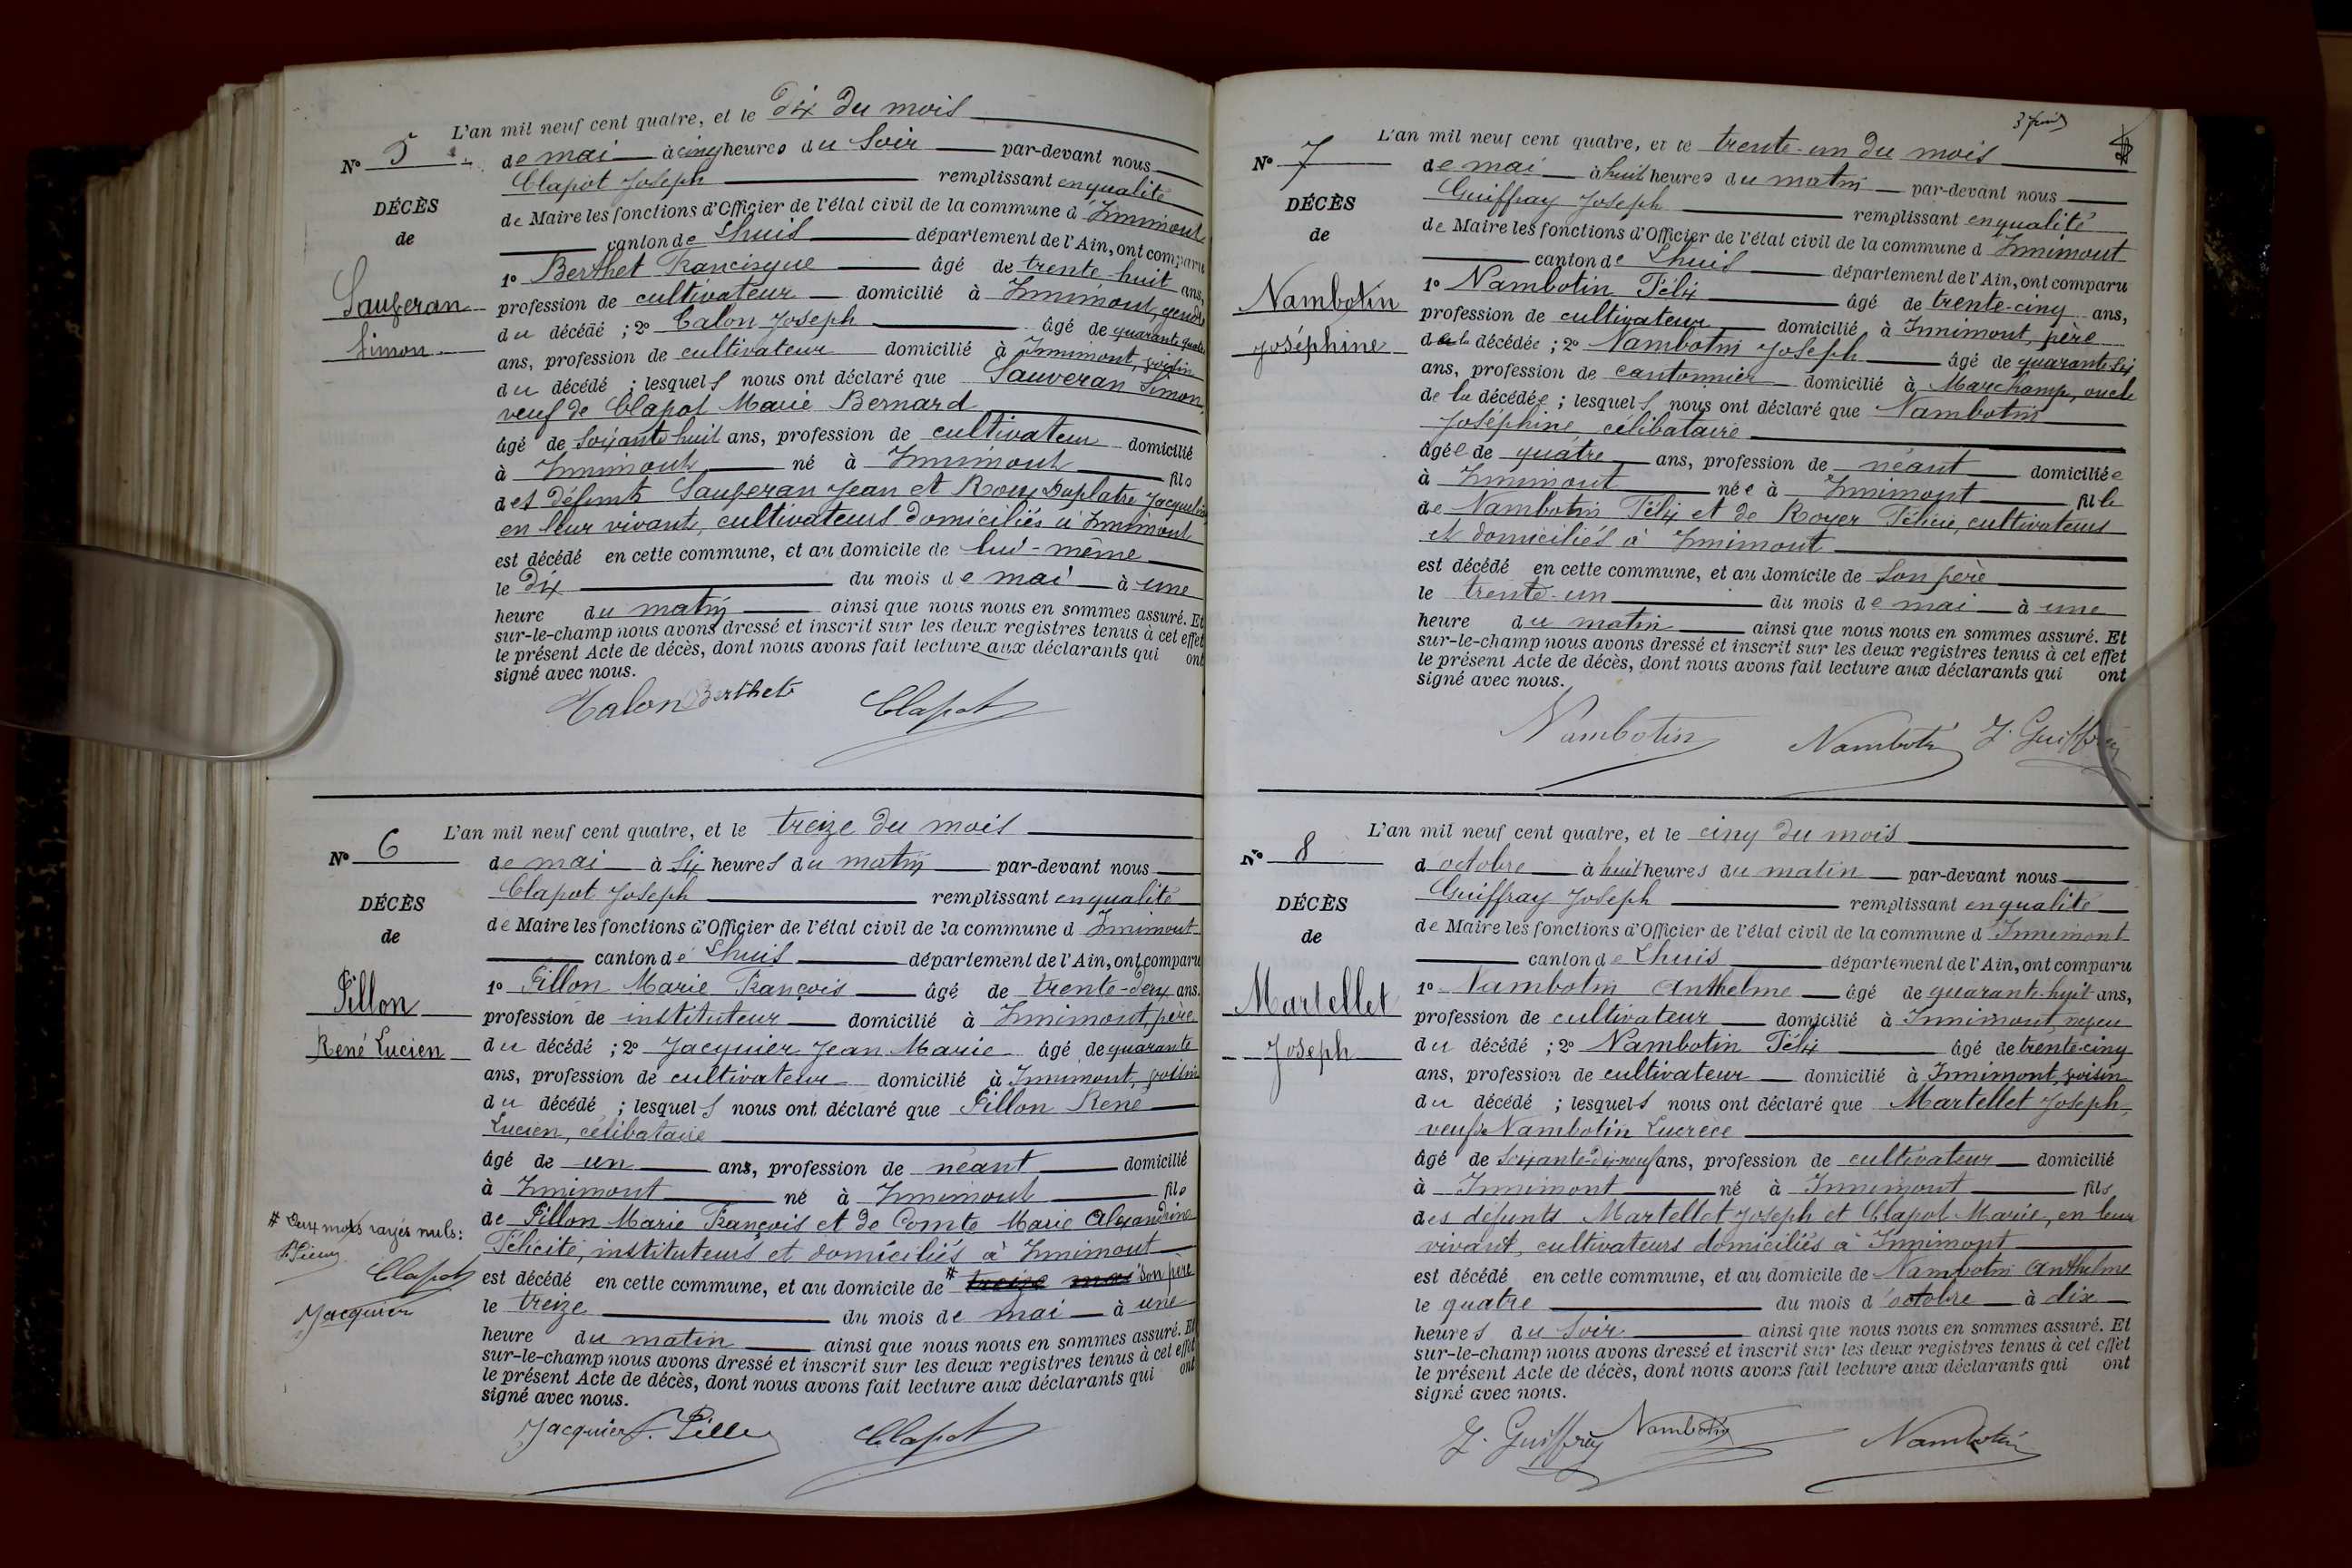 L'an mil neuf cent quatre, et le dix du mois
N° 5
de mai à cinq heures du soir par-devant nous
Clapot Joseph remplissant en qualité
DÉCÈS
de Maire les fonctions d'Officier de l'état civil de la commune d'Innimont
de
canton de Lhuis département de l'Ain, ont comparu
1° Berthet Francisque âgé de trente huit ans,
Sauveran
profession de cultivateur domicilié à Innimont, gendre
Simon
du décédé ; 2° Calon Joseph âgé de quarante quatre
ans, profession de cultivateur domicilié à Innimont, voisin
du décédé ; lesquels nous ont déclaré que Sauveran Simon,
veuf de Clapot Marie Bernard
âgé de soixante huit ans, profession de cultivateur domicilié
à Innimont né à Innimont fils
des défunts Sauveran Jean et Roux Duplatre Jacqueline
en leur vivant, cultivateurs domiciliés à Innimont
est décédé en cette commune, et au domicile de lui-même
le dix du mois de mai à une
heure du matin ainsi que nous nous en sommes assuré. Et
sur-le-champ nous avons dressé et inscrit sur les deux registres tenus à cet effet
le présent Acte de décès, dont nous avons fait lecture aux déclarants qui ont
signé avec nous.
Calon Berthet Clapot
L'an mil neuf cent quatre, et le treize du mois
N° 6
de mai à six heures du matin par-devant nous
Clapot Joseph remplissant en qualité
DÉCÈS
de Maire les fonctions d'Officier de l'état civil de la commune d Innimont
de
canton de Lhuis département de l'Ain, ont comparu
Pillon
1° Pillon Marie François âgé de trente-deux ans.
profession de instituteur domicilié à Innimont, père
René Lucien
du décédé ; 2° Jacquier Jean Marie âgé de quarante
ans, profession de cultivateur domicilié à Innimont, voisin
du décédé ; lesquels nous ont déclaré que Pillon René
Lucien, célibataire
âgé de un ans, profession de néant domicilié
à Innimont né à Innimont fils
de Pillon Marie François et de Comte Marie Alexandrine
Félicité, instituteurs et domiciliés à Innimont
# Deux mots rayés nuls :
Clapot
Jacquier
est décédé en cette commune, et au domicile de # treize mai son père
le treize du mois de mai à une
heure du matin ainsi que nous nous en sommes assuré. Et
sur-le-champ nous avons dressé et inscrit sur les deux registres tenus à cet effet
le présent Acte de décès, dont nous avons fait lecture aux déclarants qui ont
signé avec nous.
Jacquier F. Pillon Clapot
L'an mil neuf cent quatre, et le trente-un du mois
N° 7
de mai à huit heures du matin par-devant nous
Guiffray Joseph remplissant en qualité
DÉCÈS
de Maire les fonctions d'Officier de l'état civil de la commune d'Innimont
de
canton de Lhuis département de l'Ain, ont comparu
Nambotin
1° Nambotin Félix âgé de trente-cinq ans,
profession de cultivateur domicilié à Innimont, père
Joséphine
de la décédée ; 2° Nambotin Joseph âgé de quarante-six
ans, profession de cantonnier domicilié à Marchamp, oncle
de la décédée ; lesquels nous ont déclaré que Nambotin
Joséphine célibataire
âgée de quatre ans, profession de néant domiciliée
à Innimont née à Innimont fille
de Nambotin Félix et de Royer Félicie, cultivateurs
et domiciliés à Innimont
est décédé en cette commune, et au domicile de son père
le trente-un du mois de mai à une
heure du matin ainsi que nous nous en sommes assuré. Et
sur-le-champ nous avons dressé et inscrit sur les deux registres tenus à cet effet
le présent Acte de décès, dont nous avons fait lecture aux déclarants qui ont
signé avec nous.
Nambotin Nambotin J. Guiffray
L'an mil neuf cent quatre, et le cinq du mois
N° 8
d octobre à huit heures du matin par-devant nous
Guiffray Joseph remplissant en qualité
DÉCÈS
de Maire les fonctions d'Officier de l'état civil de la commune d'Innimont
de
canton de Lhuis département de l'Ain, ont comparu
Martellet
1° Nambotin Anthelme âgé de quarante-huit ans,
profession de cultivateur domicilié à Innimont, neveu
Joseph
du décédé ; 2° Nambotin Félix âgé de trente-cinq
ans, profession de cultivateur domicilié à Innimont, voisin
du décédé ; lesquels nous ont déclaré que Martellet Joseph,
veuf de Nambotin Lucrèce
âgé de soixante-dix-neuf ans, profession de cultivateur domicilié
à Innimont né à Innimont fils
des défunts Martellet Joseph et Clapot Marie, en leur
vivant, cultivateurs domiciliés à Innimont
est décédé en cette commune, et au domicile de Nambotin Anthelme
le quatre du mois d'octobre à dix
heures du soir ainsi que nous nous en sommes assuré. Et
sur-le-champ nous avons dressé et inscrit sur les deux registres tenus à cet effet
le présent Acte de décès, dont nous avons fait lecture aux déclarants qui ont
signé avec nous.
J. Guiffray Nambotin Nambotin